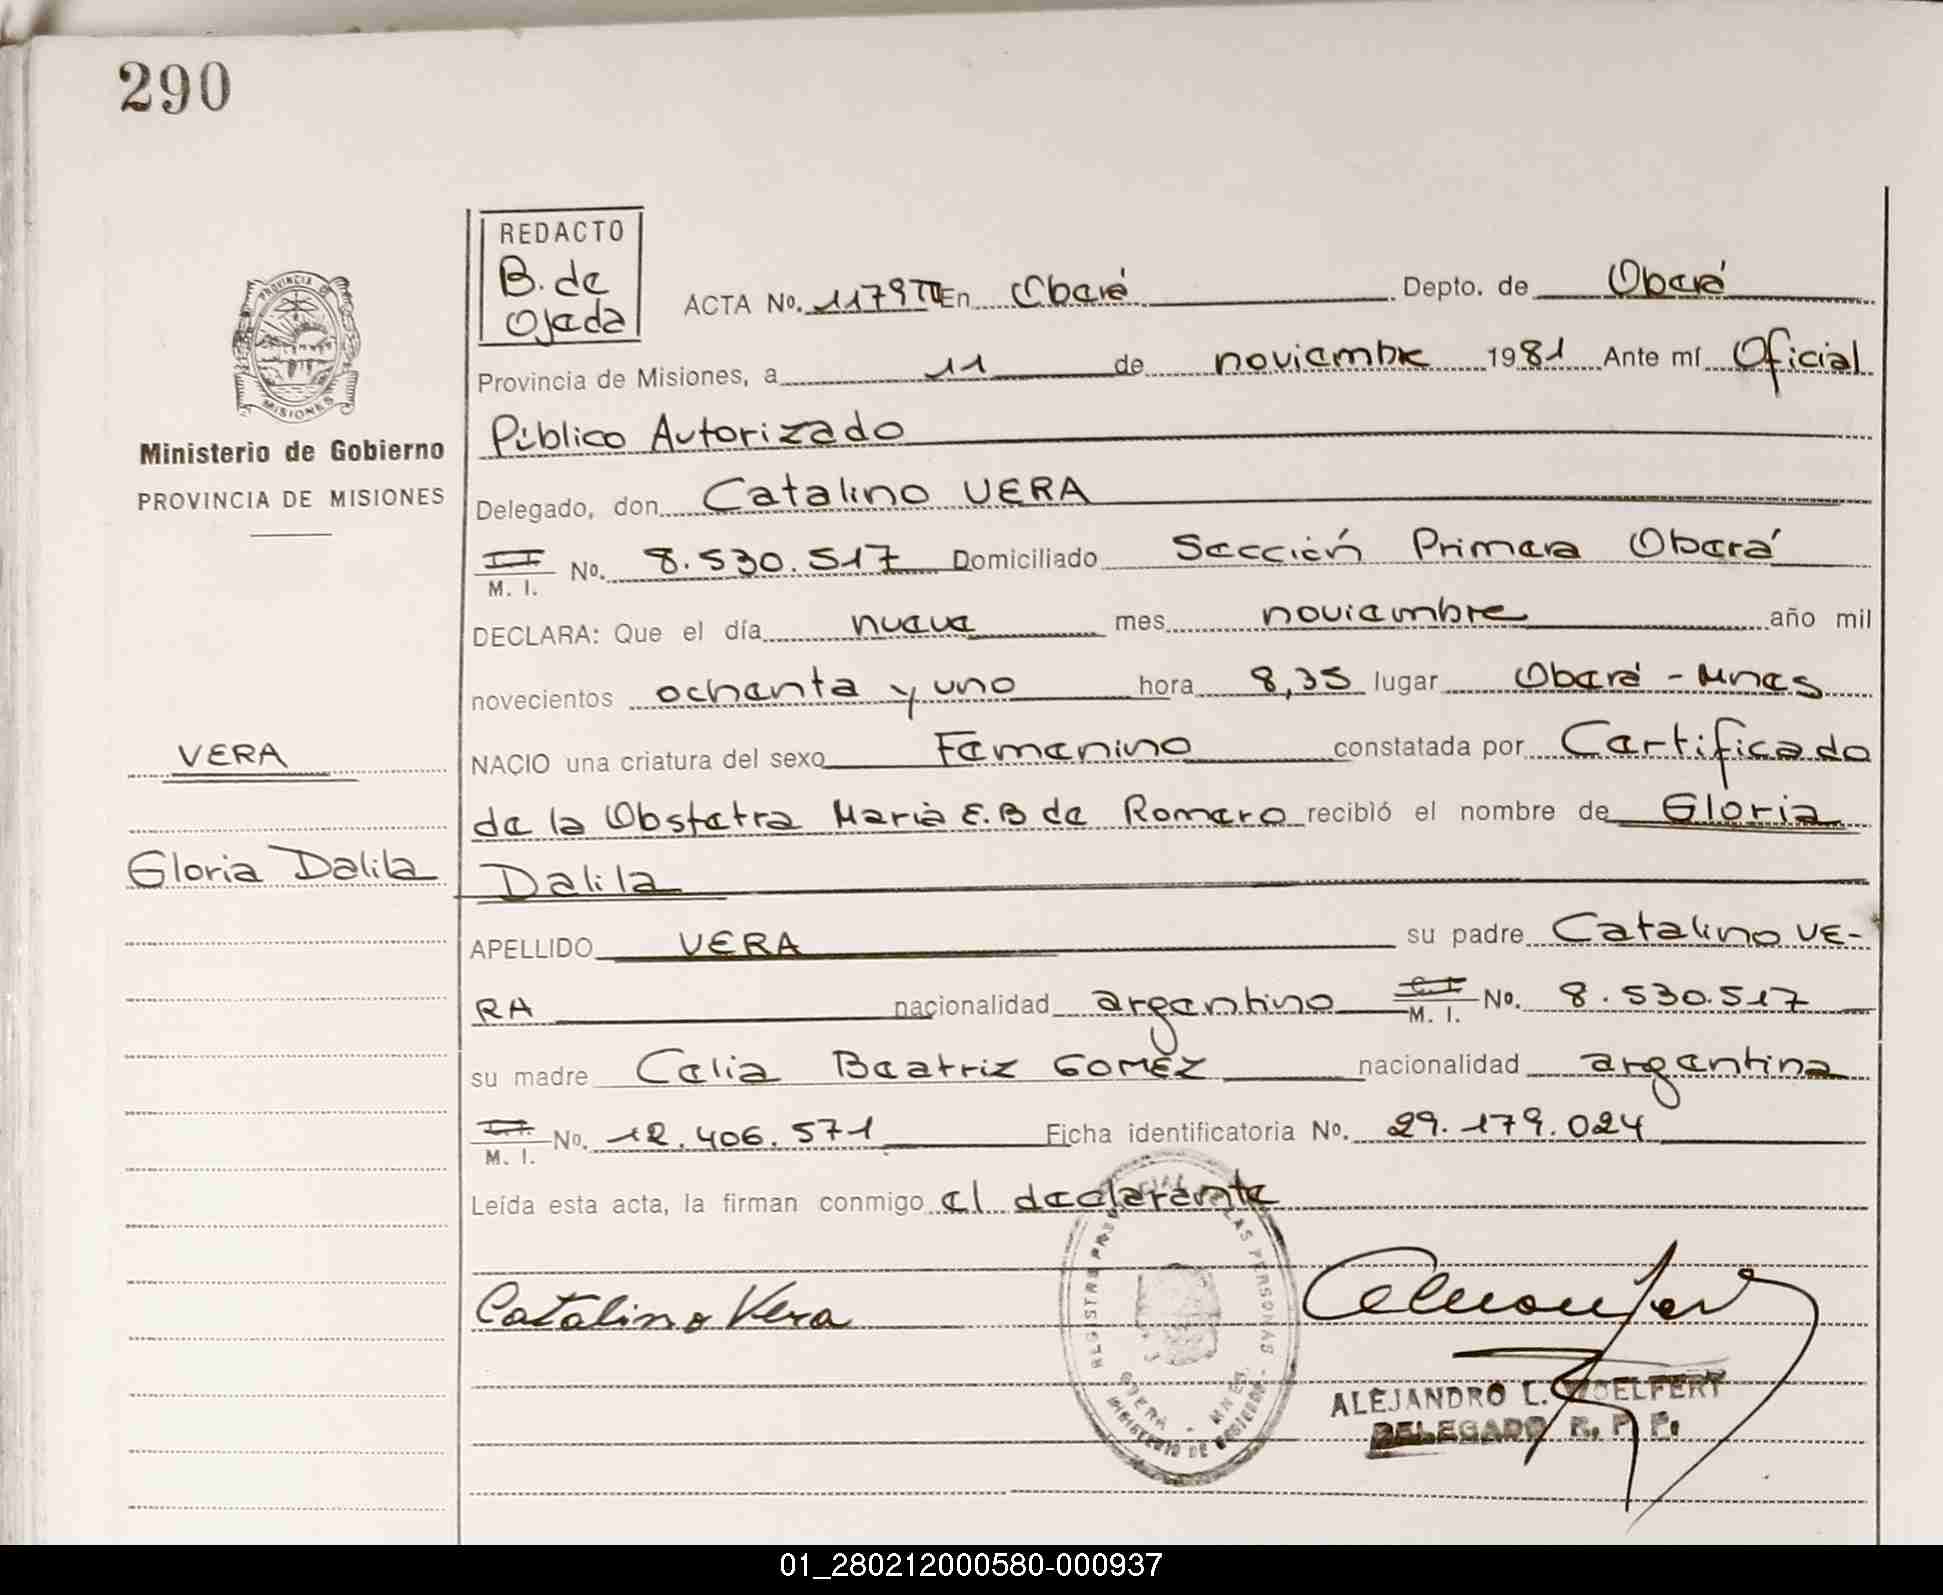 290
REDACTO
B. de
Ojeda
ACTA No. 1179 En Oberá Depto. de Oberá
Provincia de Misiones, a 11 de noviembre 1981 Ante mí Oficial
Público Autorizado
Delegado, don Catalino VERA
M. I. No. 8.530.517 Domiciliado Sección Primera Oberá
DECLARA: Que el día nueve mes noviembre año mil
novecientos ochenta y uno hora 8,35 lugar Oberá - Mnes
NACIO una criatura del sexo Femenino constatada por Certificado
de la Obstetra María E. B de Romero recibió el nombre de Gloria
Dalila
APELLIDO VERA su padre Catalino VE-
RA nacionalidad argentino C. I. M. I. No. 8.530.517
su madre Celia Beatriz GOMEZ nacionalidad argentina
M. I. No. 12.406.571 Ficha identificatoria No. 29.179.024
Leída esta acta, la firman conmigo el declarante
Catalino Vera
ALEJANDRO L.
DELEGADO R. P. P.
PROVINCIA DE
MISIONES
Ministerio de Gobierno
PROVINCIA DE MISIONES
VERA
Gloria Dalila
LAS PERSONAS
OBERA - MNES.
MINISTERIO DE GOBIERNO
01_280212000580-000937